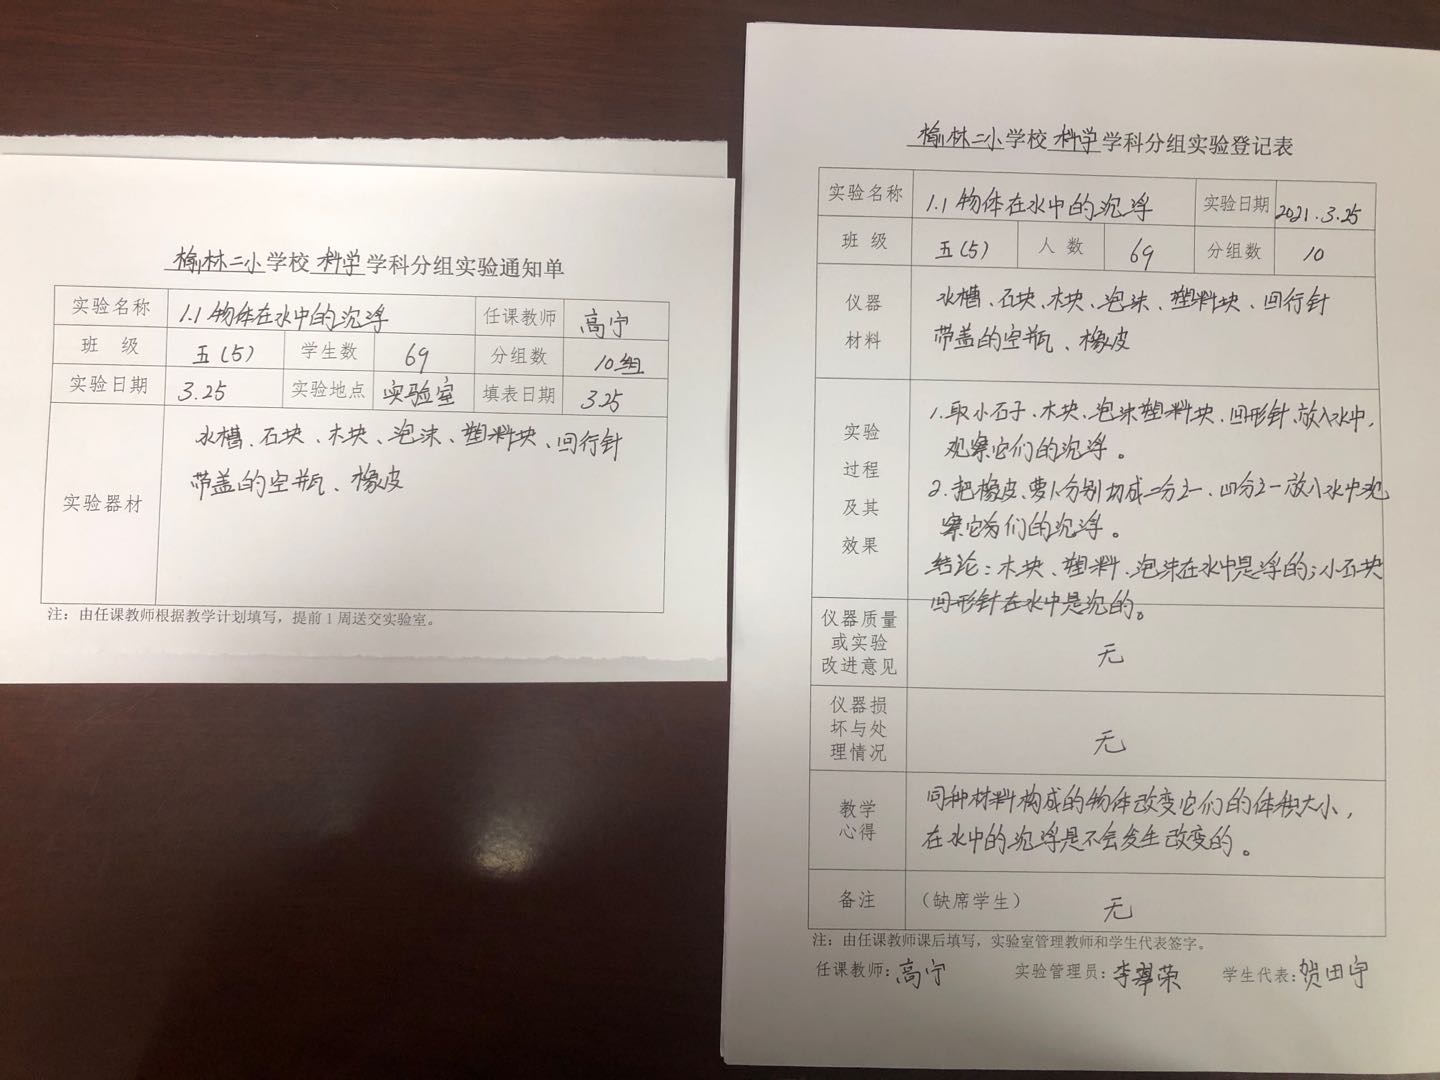 榆林二小学校科学学科分组实验通知单
实验名称 1.1物体在水中的沉浮 任课教师 高宁
班 级 五(5) 学生数 69 分组数 10组
实验日期 3.25 实验地点 实验室 填表日期 3.25
实验器材
水槽、石块、木块、泡沫、塑料块、回行针
带盖的空瓶、橡皮
注：由任课教师根据教学计划填写，提前1周送交实验室。
榆林二小学校科学学科分组实验登记表
实验名称 1.1物体在水中的沉浮 实验日期 2021.3.25
班 级 五(5) 人 数 69 分组数 10
仪器
材料
水槽、石块、木块、泡沫、塑料块、回行针
带盖的空瓶、橡皮
实验
过程
及其
效果
1.取小石子、木块、泡沫塑料块、回形针、放入水中,
观察它们的沉浮。
2.把橡皮、萝卜分别切成二分之一、四分之一放入水中观
察它们的沉浮。
结论：木块、塑料、泡沫在水中是浮的；小石块
回形针在水中是沉的。
仪器质量
或实验
改进意见
无
仪器损
坏与处
理情况
无
教学
心得
同种材料构成的物体改变它们的体积大小，
在水中的沉浮是不会发生改变的。
备注 （缺席学生） 无
注：由任课教师课后填写，实验室管理教师和学生代表签字。
任课教师：高宁 实验管理员：李翠荣 学生代表：贺田宇